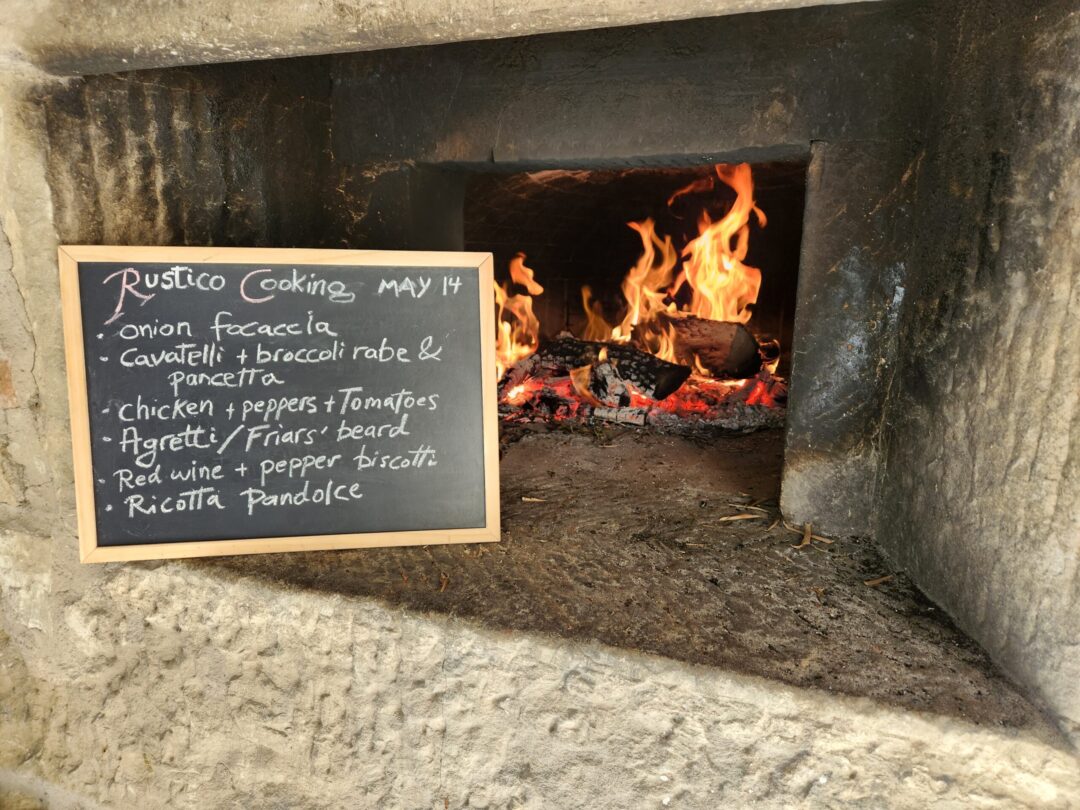 Rustico Cooking MAY 14
• onion focaccia
• Cavatelli + broccoli rabe &
pancetta
• chicken + peppers + Tomatoes
• Agretti / Friars' beard
• Red wine + pepper biscotti
• Ricotta Pandolce